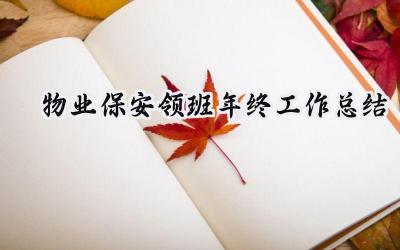 物业保安领班年终工作总结